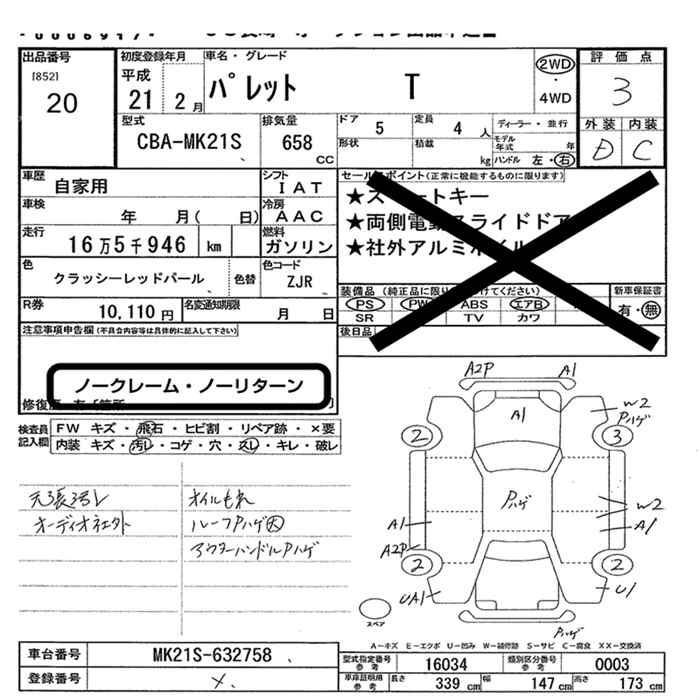 出品番号
[852]
20
初度登録年月
平成
21 2月
車名・グレード
パレット T
2WD
4WD
評価点
3
外装 内装
D C
型式
CBA-MK21S
排気量
658 CC
ドア 5
定員 4 人
形状
積載 kg
ディーラー・並行
モデル年式 年
ハンドル 左・右
車歴
自家用
シフト
IAT
車検
年 月( 日)
冷房
AAC
走行
16万5千946 km
燃料
ガソリン
色
クラッシーレッドパール
色替
色コード
ZJR
R券
10,110円
名変通知期限
月 日
セールスポイント(正常に機能するものに限ります)
★スマートキー
★両側電動スライドドア
★社外アルミホイル
装備品(純正品に限り○をつけてください)
新車保証書
PS PW ABS エアB
SR TV カワ
有・無
後日品
注意事項申告欄(不具合内容等は具体的に記入して下さい)
ノークレーム・ノーリターン
検査員記入欄
FW キズ・飛石・ヒビ割・リペア跡・×要
内装 キズ・汚レ・コゲ・穴・スレ・キレ・破レ
天張汚レ
オイルもれ
オーディオネェクト
ルーフPハゲ大
アウターハンドルPハゲ
A2P A1
A1
W2
Pハゲ
2
3
Pハゲ
W2
A1
A1
A2P
2
2
UA1
U1
スペア
Pハゲ
A-キズ E-エクボ U-凹み W-補修跡 S-サビ C-腐食 XX-交換済
車台番号
MK21S-632758
登録番号
×
型式指定番号 参考
16034
類別区分番号 参考
0003
車庫証明用 参考
長さ 339 cm
幅 147 cm
高さ 173 cm